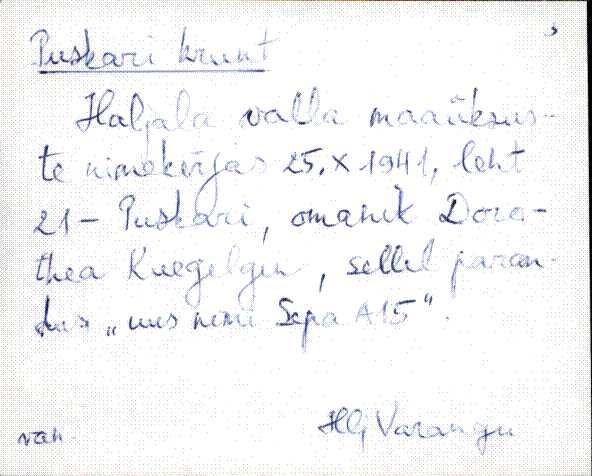 Puskari krunt
Haljala valla maaüksus-
te nimekirjas 25.X 1941, leht
21 - Puskari, omanik Doro-
thea Kuegelgen, sellel paran-
dus „uus nimi Sepa A15".
Hlj Varangu
van.